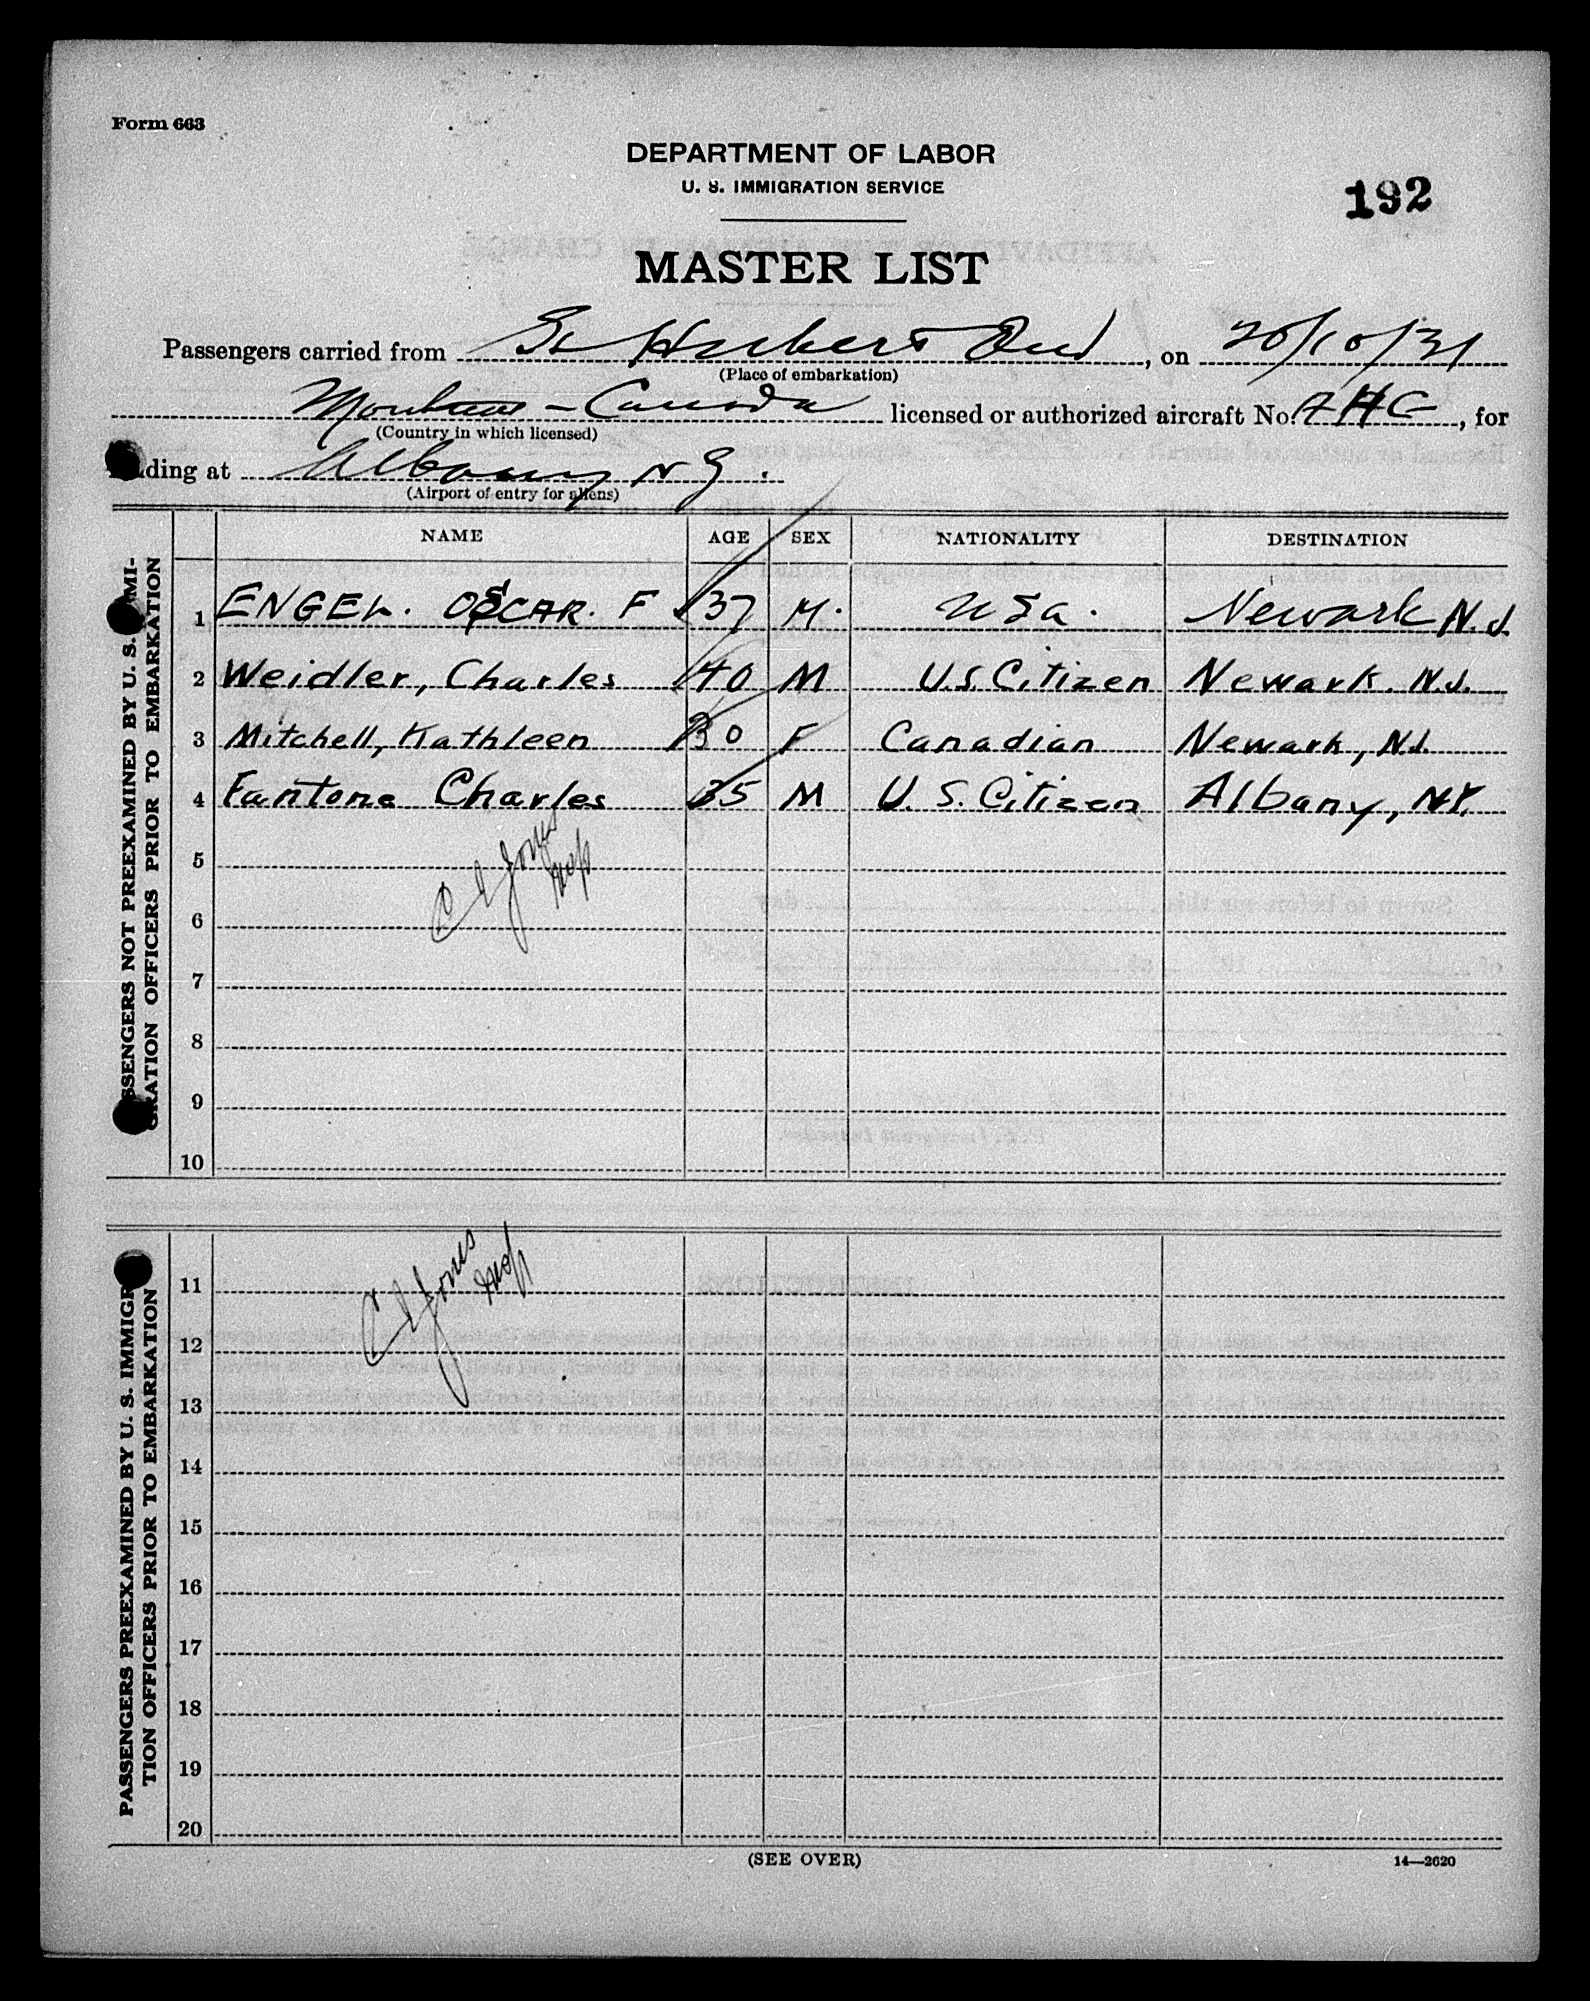 Form 663
DEPARTMENT OF LABOR
U. S. IMMIGRATION SERVICE
192
MASTER LIST
Passengers carried from St Hubert Que, on 20/10/31
(Place of embarkation)
Montreal - Canada licensed or authorized aircraft No. AHC, for
(Country in which licensed)
landing at Albany N Y.
(Airport of entry for aliens)
NAME AGE SEX NATIONALITY DESTINATION
PASSENGERS NOT PREEXAMINED BY U. S. IMMI-
GRATION OFFICERS PRIOR TO EMBARKATION
1 ENGEL. OSCAR. F 37 M. USa. Newark N.J.
2 Weidler, Charles 40 M U.S. Citizen Newark. N.J.
3 Mitchell, Kathleen 30 F Canadian Newark, N.J.
4 Fantone Charles 35 M U. S. Citizen Albany, N.Y.
Jones
Insp
5
6
7
8
9
10
PASSENGERS PREEXAMINED BY U. S. IMMIGRA-
TION OFFICERS PRIOR TO EMBARKATION
Jones
Insp
11
12
13
14
15
16
17
18
19
20
(SEE OVER)
14—2620